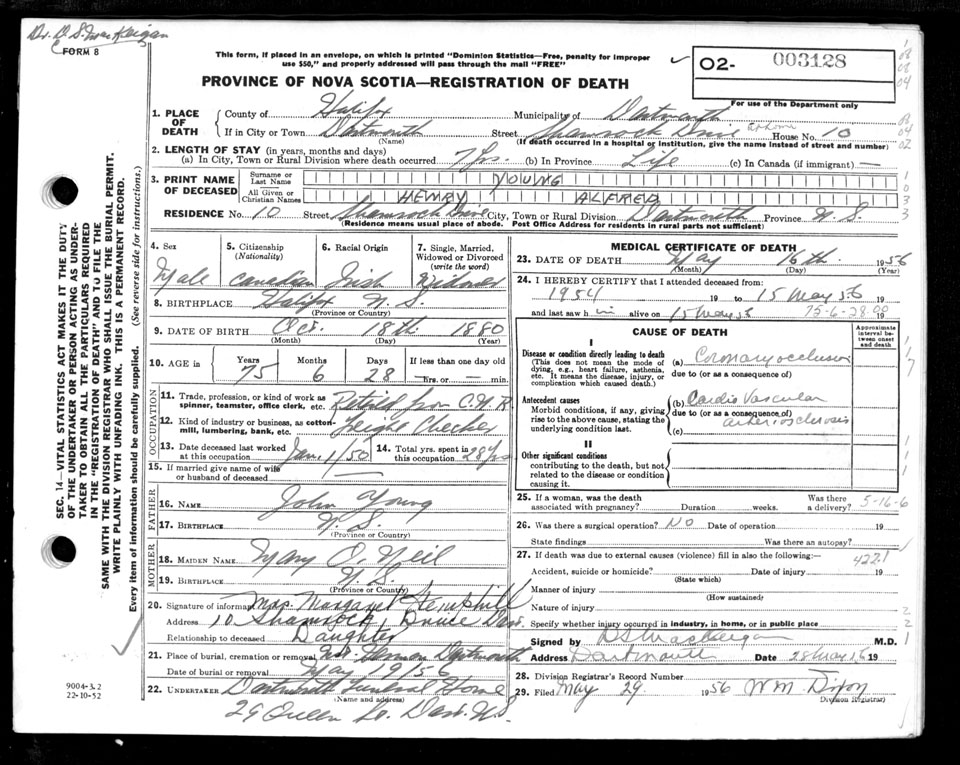 Dr. D. S. MacKeigan
FORM 8
This form, if placed in an envelope, on which is printed "Dominion Statistics—Free, penalty for improper
use $50," and properly addressed will pass through the mail "FREE"
PROVINCE OF NOVA SCOTIA—REGISTRATION OF DEATH
02- 003128
For use of the Department only
1. PLACE OF DEATH
County of Halifax Municipality of Dartmouth
If in City or Town Dartmouth Street Shamrock Drive House No. 10
(Name) (If death occurred in a hospital or institution, give the name instead of street and number)
2. LENGTH OF STAY (in years, months and days)
(a) In City, Town or Rural Division where death occurred 7 yrs. (b) In Province Life (c) In Canada (if immigrant) —
3. PRINT NAME OF DECEASED
Surname or Last Name YOUNG
All Given or Christian Names HENRY ALFRED
RESIDENCE No. 10 Street Shamrock Drive City, Town or Rural Division Dartmouth Province N.S.
(Residence means usual place of abode. Post Office Address for residents in rural parts not sufficient)
4. Sex 5. Citizenship (Nationality) 6. Racial Origin 7. Single, Married, Widowed or Divorced (write the word)
Male Canadian Irish Widower
8. BIRTHPLACE Halifax N.S.
(Province or Country)
9. DATE OF BIRTH Oct. 18th 1880
(Month) (Day) (Year)
10. AGE in Years Months Days If less than one day old
75 6 28 hrs. or min.
OCCUPATION
11. Trade, profession, or kind of work as spinner, teamster, office clerk, etc. Retired from C.N.R
12. Kind of industry or business, as cotton-mill, lumbering, bank, etc. Freight Checker
13. Date deceased last worked at this occupation Jan 1/50 14. Total yrs. spent in this occupation 28 yrs
15. If married give name of wife or husband of deceased —
FATHER
16. NAME John Young
17. BIRTHPLACE N.S.
(Province or Country)
MOTHER
18. MAIDEN NAME Mary O'Neil
19. BIRTHPLACE N.S.
(Province or Country)
20. Signature of informant Mrs. Margaret Hemphill
Address 10 Shamrock Drive Dart.
Relationship to deceased Daughter
21. Place of burial, cremation or removal Dartmouth
Date of burial or removal May 1956
22. UNDERTAKER Dartmouth Funeral Home
(Name and address)
29 Queen St. Dart. N.S.
MEDICAL CERTIFICATE OF DEATH
23. DATE OF DEATH May 16th 1956
(Month) (Day) (Year)
24. I HEREBY CERTIFY that I attended deceased from:
1954 19 to 15 May 56 19
and last saw him alive on 15 May 56 75-6-28 19
CAUSE OF DEATH
Approximate interval between onset and death
I
Disease or condition directly leading to death (a) Coronary occlusion
(This does not mean the mode of dying, e.g., heart failure, asthenia, etc. It means the disease, injury, or complication which caused death.)
due to (or as a consequence of)
Antecedent causes (b) Cardio Vascular
Morbid conditions, if any, giving rise to the above cause, stating the underlying condition last.
due to (or as a consequence of)
arteriosclerosis
(c)
II
Other significant conditions
contributing to the death, but not related to the disease or condition causing it.
25. If a woman, was the death associated with pregnancy? Duration weeks. Was there a delivery? 5-16-6
26. Was there a surgical operation? No Date of operation 19
State findings Was there an autopsy?
27. If death was due to external causes (violence) fill in also the following:— 422.1
Accident, suicide or homicide? Date of injury 19
(State which)
Manner of injury
(How sustained)
Nature of injury
Specify whether injury occurred in industry, in home, or in public place
Signed by D S MacKeigan M.D.
Address Dartmouth Date 28 May 56 19
28. Division Registrar's Record Number
29. Filed May 29 1956 Wm Dixon
Division Registrar)
SEC. 14—VITAL STATISTICS ACT MAKES IT THE DUTY
OF THE UNDERTAKER OR PERSON ACTING AS UNDER-
TAKER TO OBTAIN ALL THE PARTICULARS REQUIRED
IN THE "REGISTRATION OF DEATH" AND TO FILE THE
SAME WITH THE DIVISION REGISTRAR WHO SHALL ISSUE THE BURIAL PERMIT.
WRITE PLAINLY WITH UNFADING INK. THIS IS A PERMANENT RECORD.
Every item of information should be carefully supplied. (See reverse side for instructions.)
9004-3.2
22-10-52